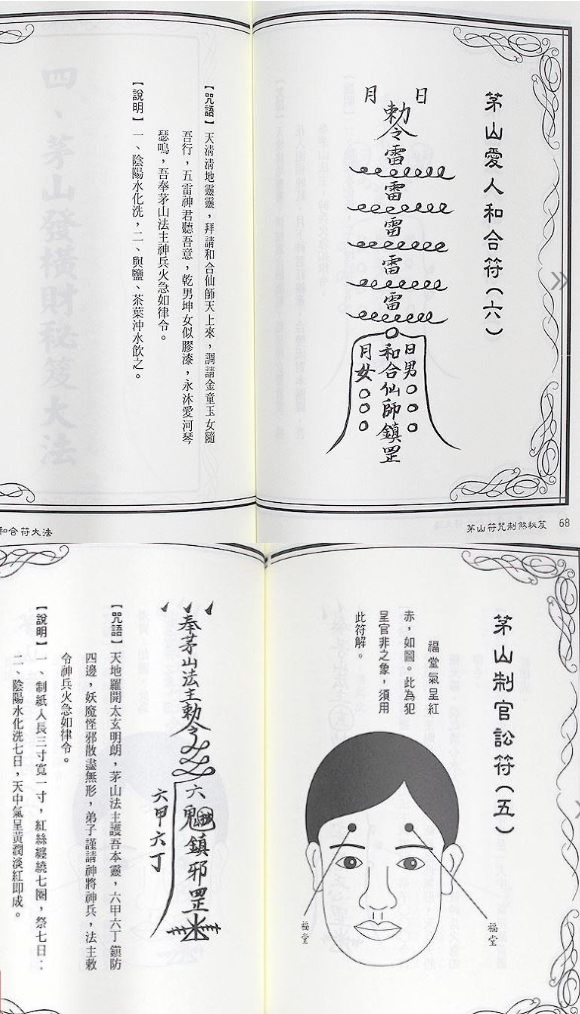 茅山愛人和合符(六)
日 月
勅令
雷
雷
雷
雷
雷
日男
和合仙師鎮罡
月女
【咒語】天清清地靈靈,拜請和合仙師天上來,調請金童玉女隨
吾行,五雷神君聽吾意,乾男坤女似膠漆,永沐愛河琴
瑟鳴,吾奉茅山法主神兵火急如律令。
【說明】一、陰陽水化洗,二、與鹽、茶葉沖水飲之。
四、茅山發橫財秘
大法
茅山符咒制煞秘笈 68
和合符大法
茅山制官訟符(五)
福堂氣呈紅
赤,如圖。此為犯
呈官非之象,須用
此符解。
福堂
福堂
奉茅山法主勅令
六
鎮邪罡
六甲六丁
【咒語】天地羅開太玄明朗,茅山法主護吾本靈,六甲六丁鎮防
四邊,妖魔怪邪散盡無形,弟子謹請神將神兵,法主敕
令神兵火急如律令。
【說明】一、制紙人長三寸寬一寸,紅絲纏繞七圈,祭七日..
二、陰陽水化洗七日,天中氣呈黃潤淡紅即成。